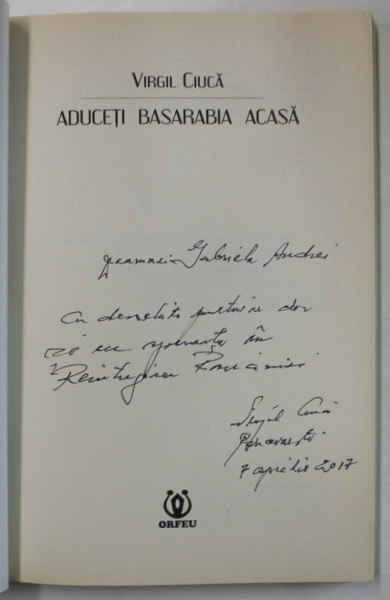 VIRGIL CIUCĂ
ADUCEȚI BASARABIA ACASĂ
Doamnei Gabriela Andrei
Cu deosebită prețuire dar
și cu speranța în
Reîntregirea României
Virgil Ciucă
7 aprilie 2017
ORFEU